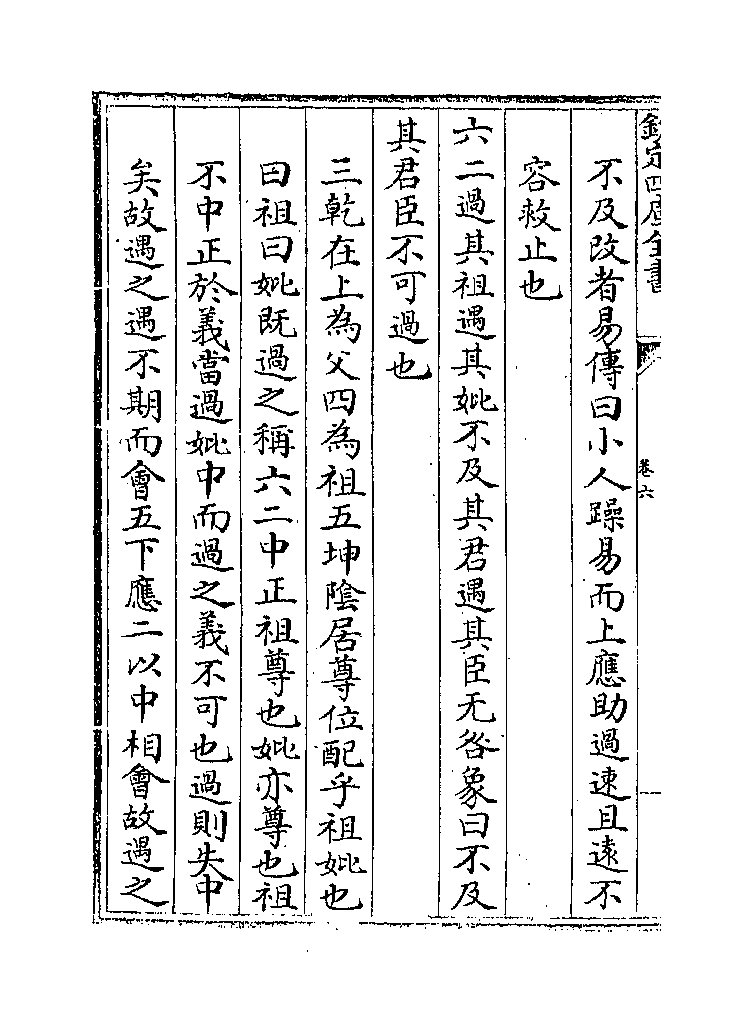 欽定四庫全書
卷六
不及改者易傳曰小人躁易而上應助過速且遠不
容救止也
六二過其祖遇其妣不及其君遇其臣无咎象曰不及
其君臣不可過也
三乾在上為父四為祖五坤陰居尊位配乎祖妣也
曰祖曰妣既過之稱六二中正祖尊也妣亦尊也祖
不中正於義當過妣中而過之義不可也過則失中
矣故遇之遇不期而會五下應二以中相會故遇之